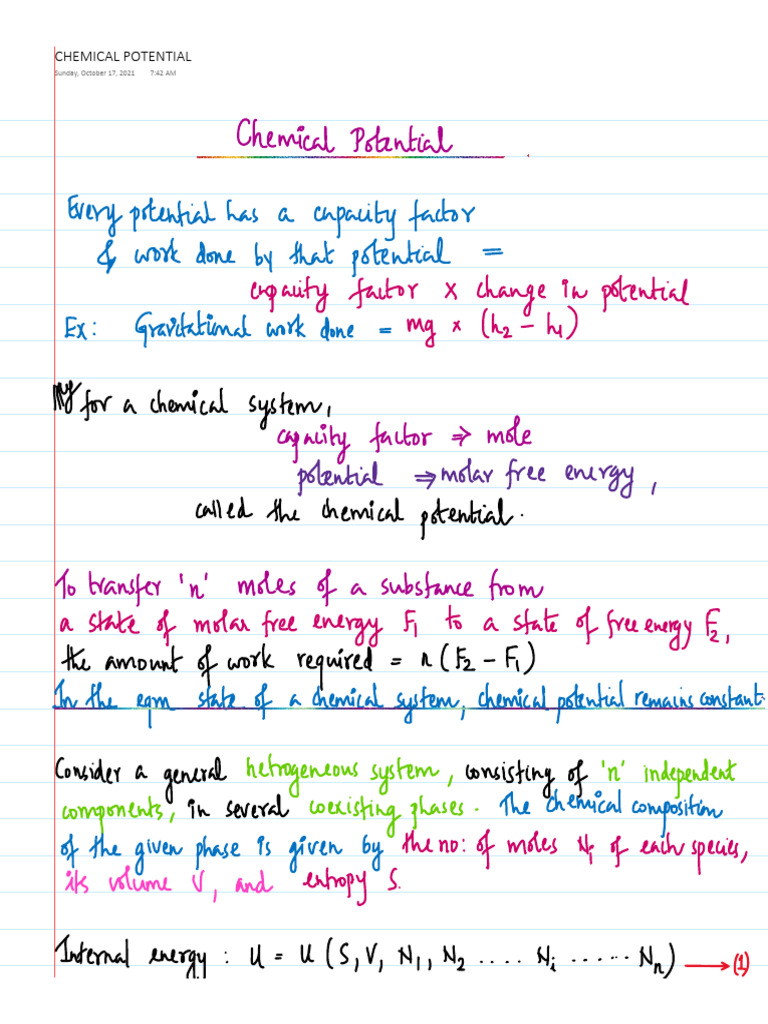 CHEMICAL POTENTIAL
Sunday, October 17, 2021 7:42 AM
Chemical Potential
Every potential has a capacity factor
& work done by that potential =
capacity factor × change in potential
Ex: Gravitational work done = mg × (h₂ − h₁)
for a chemical system,
capacity factor ⇒ mole
potential ⇒ molar free energy,
called the chemical potential.
To transfer 'n' moles of a substance from
a state of molar free energy F₁ to a state of free energy F₂,
the amount of work required = n (F₂ − F₁)
In the eqm state of a chemical system, chemical potential remains constant.
Consider a general hetrogeneous system, consisting of 'n' independent
components, in several coexisting phases. The chemical composition
of the given phase is given by the no: of moles Nᵢ of each species,
its volume V, and entropy S.
Internal energy : U = U (S, V, N₁, N₂ .... Nᵢ ...... Nₙ) → (1)